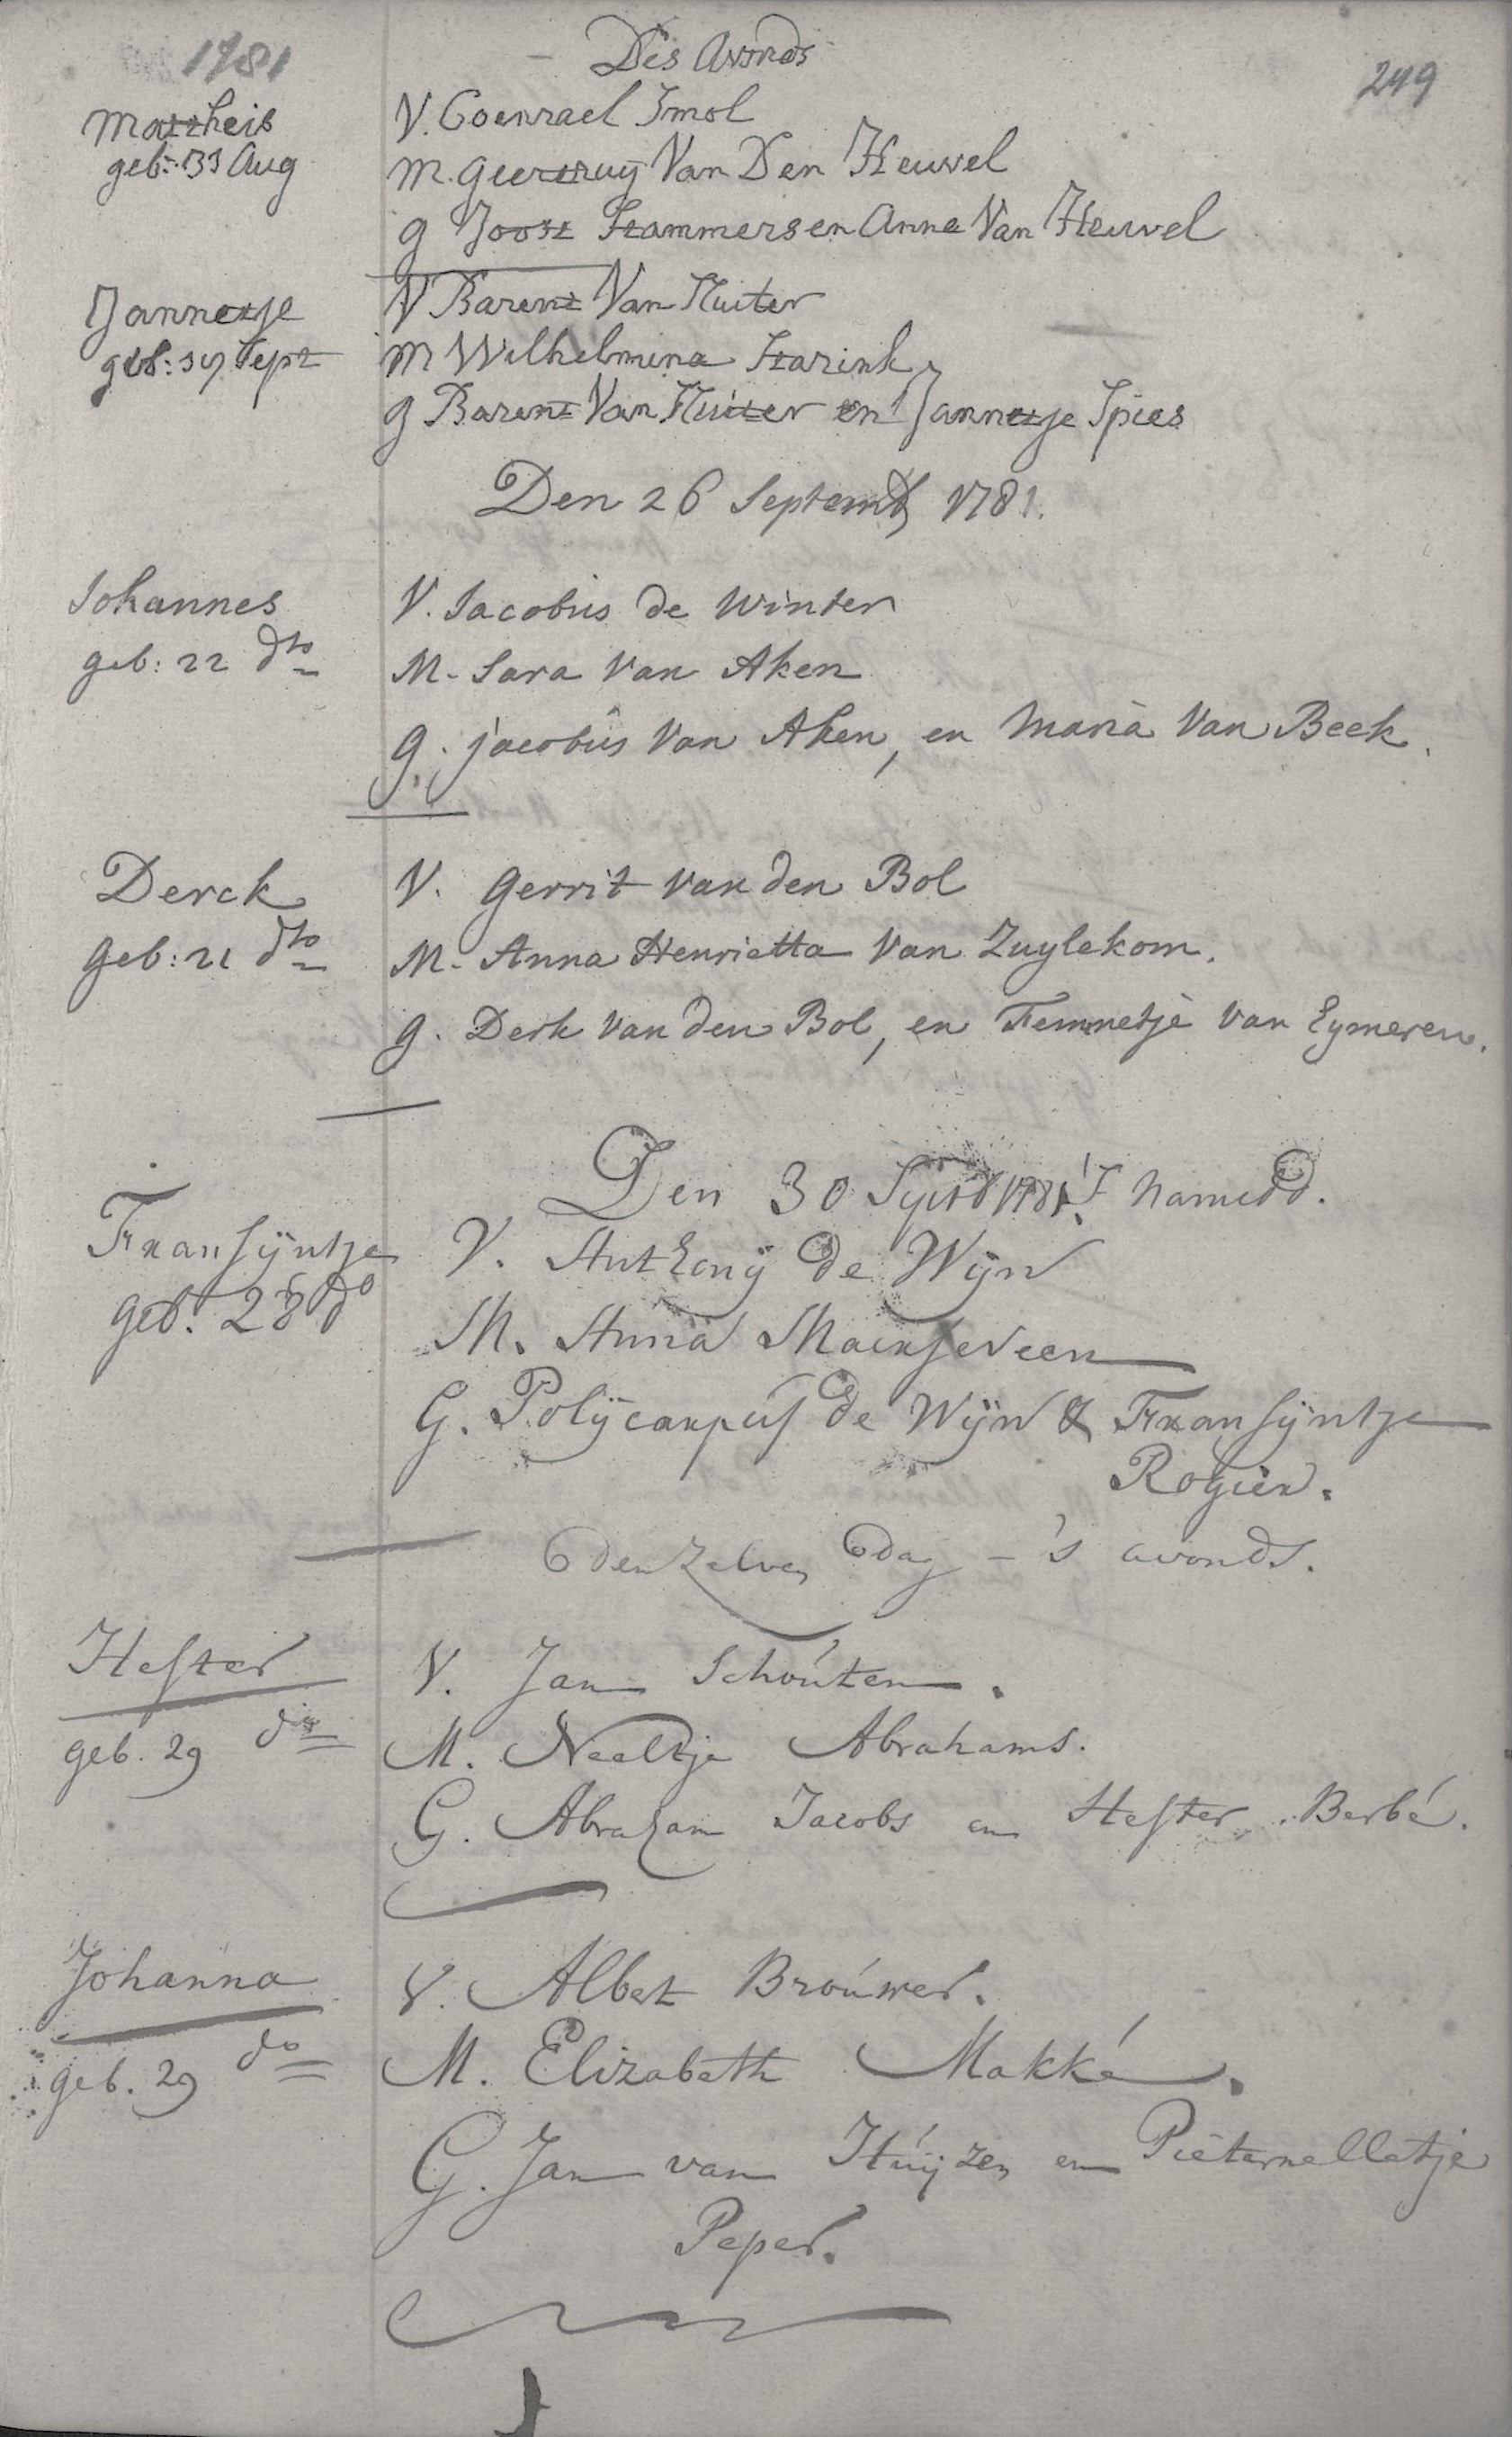 1781
Des Avonds
249
Mattheis
geb: 31 Aug
V. Coenrael Smol
M. Geertruy Van Den Heuvel
g Joost Stammers en Anna Van Heuvel
Jannetje
geb: Sept
V Barent Van Kuiter
M Wilhelmina Starink
g Barent Van Kuiter en Jannetje Spies
Den 26 Septemb 1781.
Johannes
geb: 22 dto
V. Jacobus de Winter
M. Sara Van Aken
g. Jacobus Van Aken, en Maria Van Beek.
Derck
geb: 21 dto
V. Gerrit van den Bol
M. Anna Henrietta Van Zuylekom.
g. Derk van den Bol, en Femmetje van Eymeren.
Den 30 Septb 1781 's namidd.
Fransijntje
geb. 28 do
V. Anthonij de Wijn
M. Anna Maarseveen
G. Polijcarpus de Wijn & Fransijntje
Rogier.
denzelven dag - 's avonds.
Hester
geb. 29 dto
V. Jan Schoúten.
M. Neeltje Abrahams.
G. Abraham Jacobs en Hester Berbé.
Johanna
geb. 29 do
V. Albert Broúwer.
M. Elizabeth Makké.
G. Jan van Húijzen en Pieternelletje
Peper.